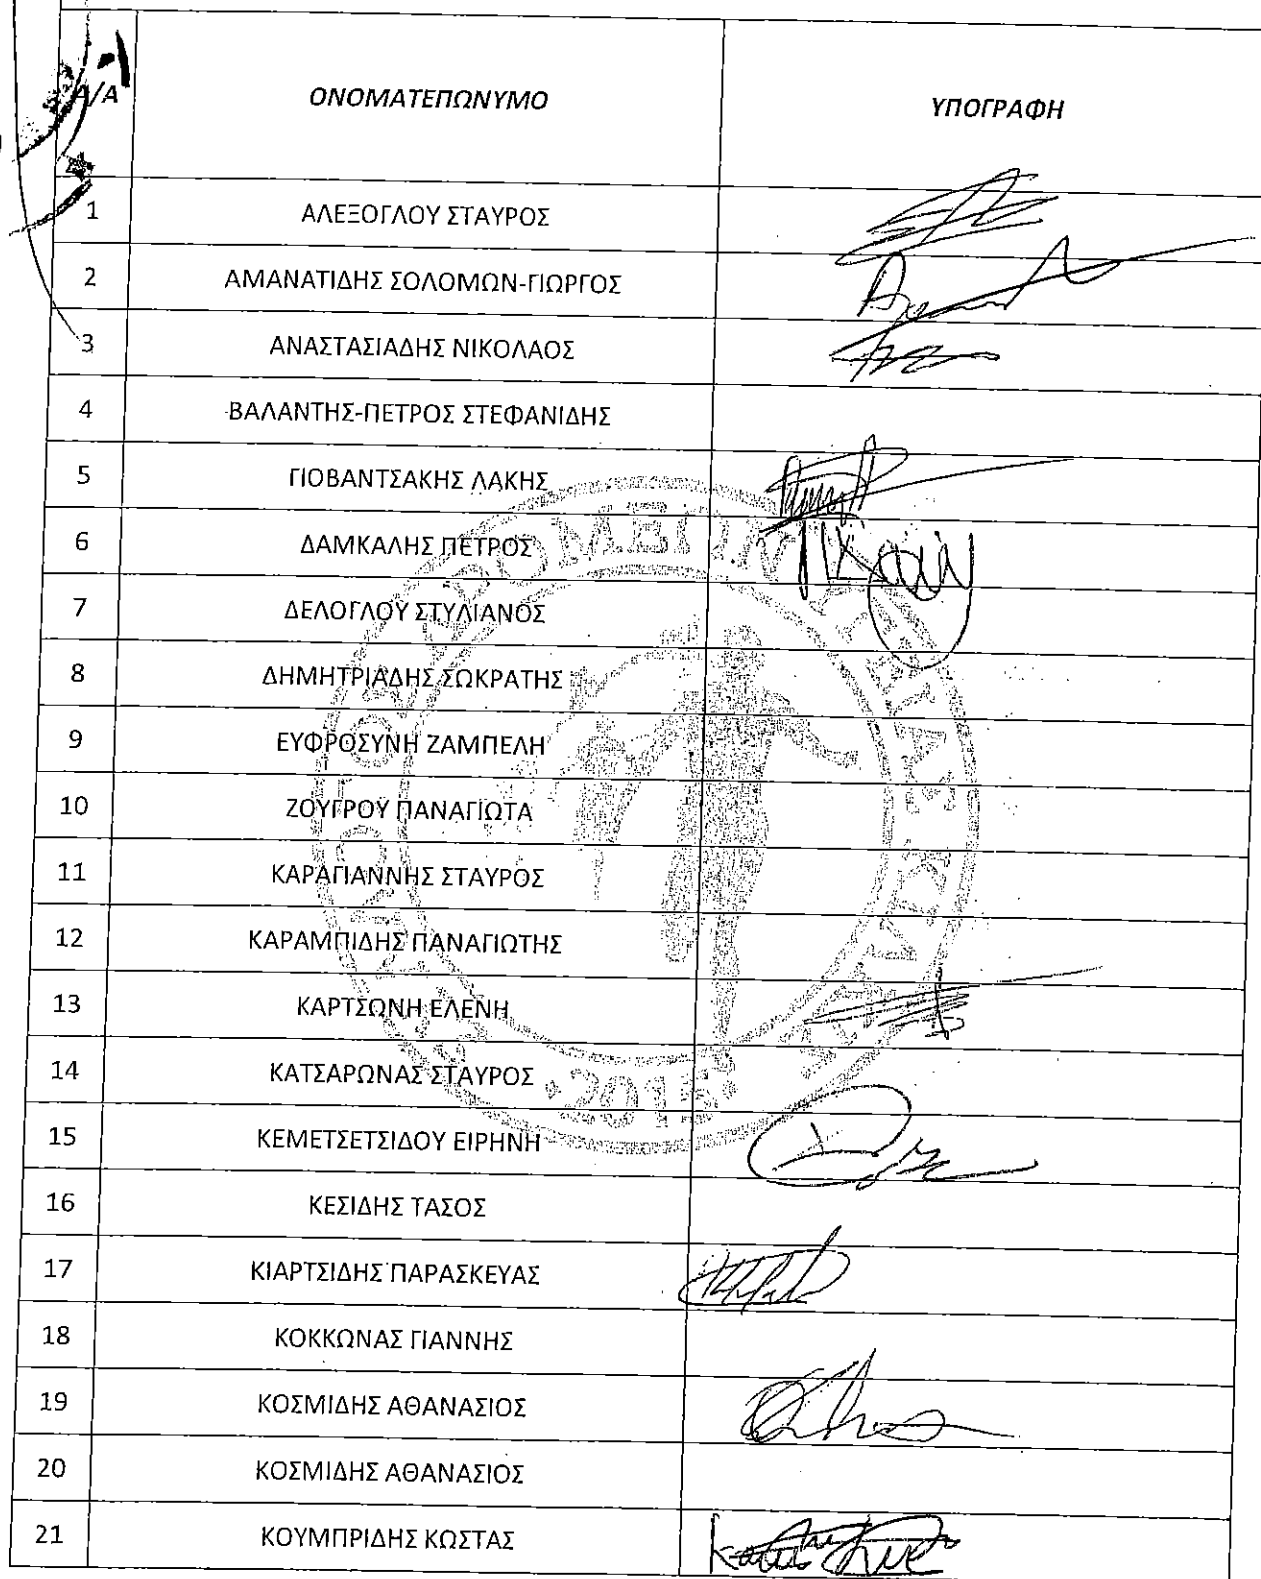 Α/Α ΟΝΟΜΑΤΕΠΩΝΥΜΟ ΥΠΟΓΡΑΦΗ
1 ΑΛΕΞΟΓΛΟΥ ΣΤΑΥΡΟΣ
2 ΑΜΑΝΑΤΙΔΗΣ ΣΟΛΟΜΩΝ-ΓΙΩΡΓΟΣ
3 ΑΝΑΣΤΑΣΙΑΔΗΣ ΝΙΚΟΛΑΟΣ
4 ΒΑΛΑΝΤΗΣ-ΠΕΤΡΟΣ ΣΤΕΦΑΝΙΔΗΣ
5 ΓΙΟΒΑΝΤΣΑΚΗΣ ΛΑΚΗΣ
6 ΔΑΜΚΑΛΗΣ ΠΕΤΡΟΣ
7 ΔΕΛΟΓΛΟΥ ΣΤΥΛΙΑΝΟΣ
8 ΔΗΜΗΤΡΙΑΔΗΣ ΣΩΚΡΑΤΗΣ
9 ΕΥΦΡΟΣΥΝΗ ΖΑΜΠΕΛΗ
10 ΖΟΥΓΡΟΥ ΠΑΝΑΓΙΩΤΑ
11 ΚΑΡΑΓΙΑΝΝΗΣ ΣΤΑΥΡΟΣ
12 ΚΑΡΑΜΠΙΔΗΣ ΠΑΝΑΓΙΩΤΗΣ
13 ΚΑΡΤΣΩΝΗ ΕΛΕΝΗ
14 ΚΑΤΣΑΡΩΝΑΣ ΣΤΑΥΡΟΣ
2015
15 ΚΕΜΕΤΣΕΤΣΙΔΟΥ ΕΙΡΗΝΗ
16 ΚΕΣΙΔΗΣ ΤΑΣΟΣ
17 ΚΙΑΡΤΣΙΔΗΣ ΠΑΡΑΣΚΕΥΑΣ
18 ΚΟΚΚΩΝΑΣ ΓΙΑΝΝΗΣ
19 ΚΟΣΜΙΔΗΣ ΑΘΑΝΑΣΙΟΣ
20 ΚΟΣΜΙΔΗΣ ΑΘΑΝΑΣΙΟΣ
21 ΚΟΥΜΠΡΙΔΗΣ ΚΩΣΤΑΣ